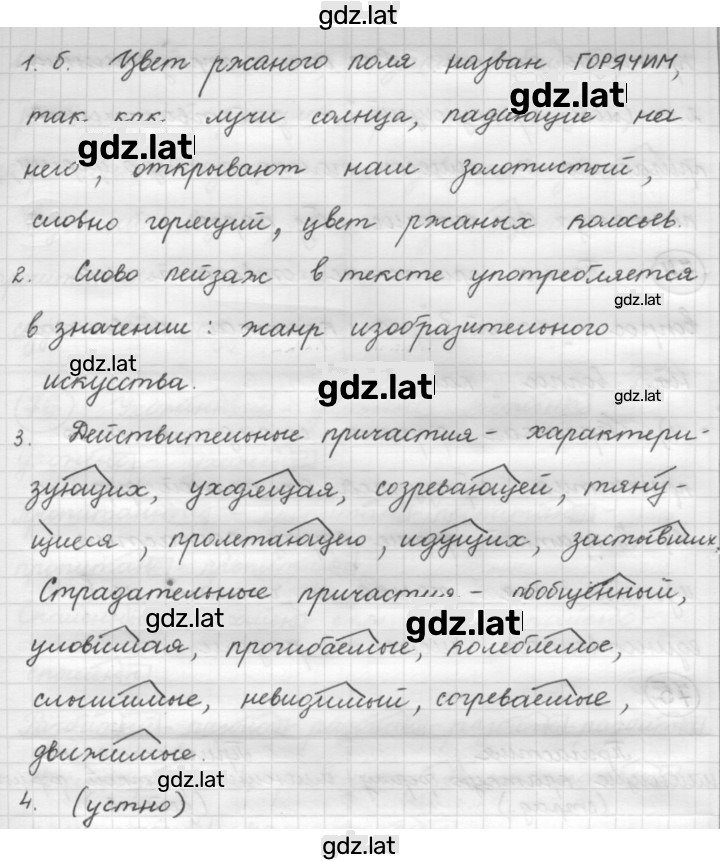 gdz.lat
1. б. Цвет ржаного поля назван ГОРЯЧИМ,
gdz.lat
так как лучи солнца, падающие на
gdz.lat
него, открывают нам золотистый,
словно горящий, цвет ржаных колосьев.
2. Слово пейзаж в тексте употребляется
gdz.lat
в значении: жанр изобразительного
gdz.lat
искусства.
gdz.lat
gdz.lat
3. Действительные причастия - характери-
зующих, уходящая, созревающей, тяну-
щиеся, пролетающего, идущих, застывших,
Страдательные причастия - обобщённый,
gdz.lat
gdz.lat
уловимая, прогибаемые, колеблемое,
слышимые, невидимый, согреваемые,
движимые.
gdz.lat
4. (устно)
gdz.lat